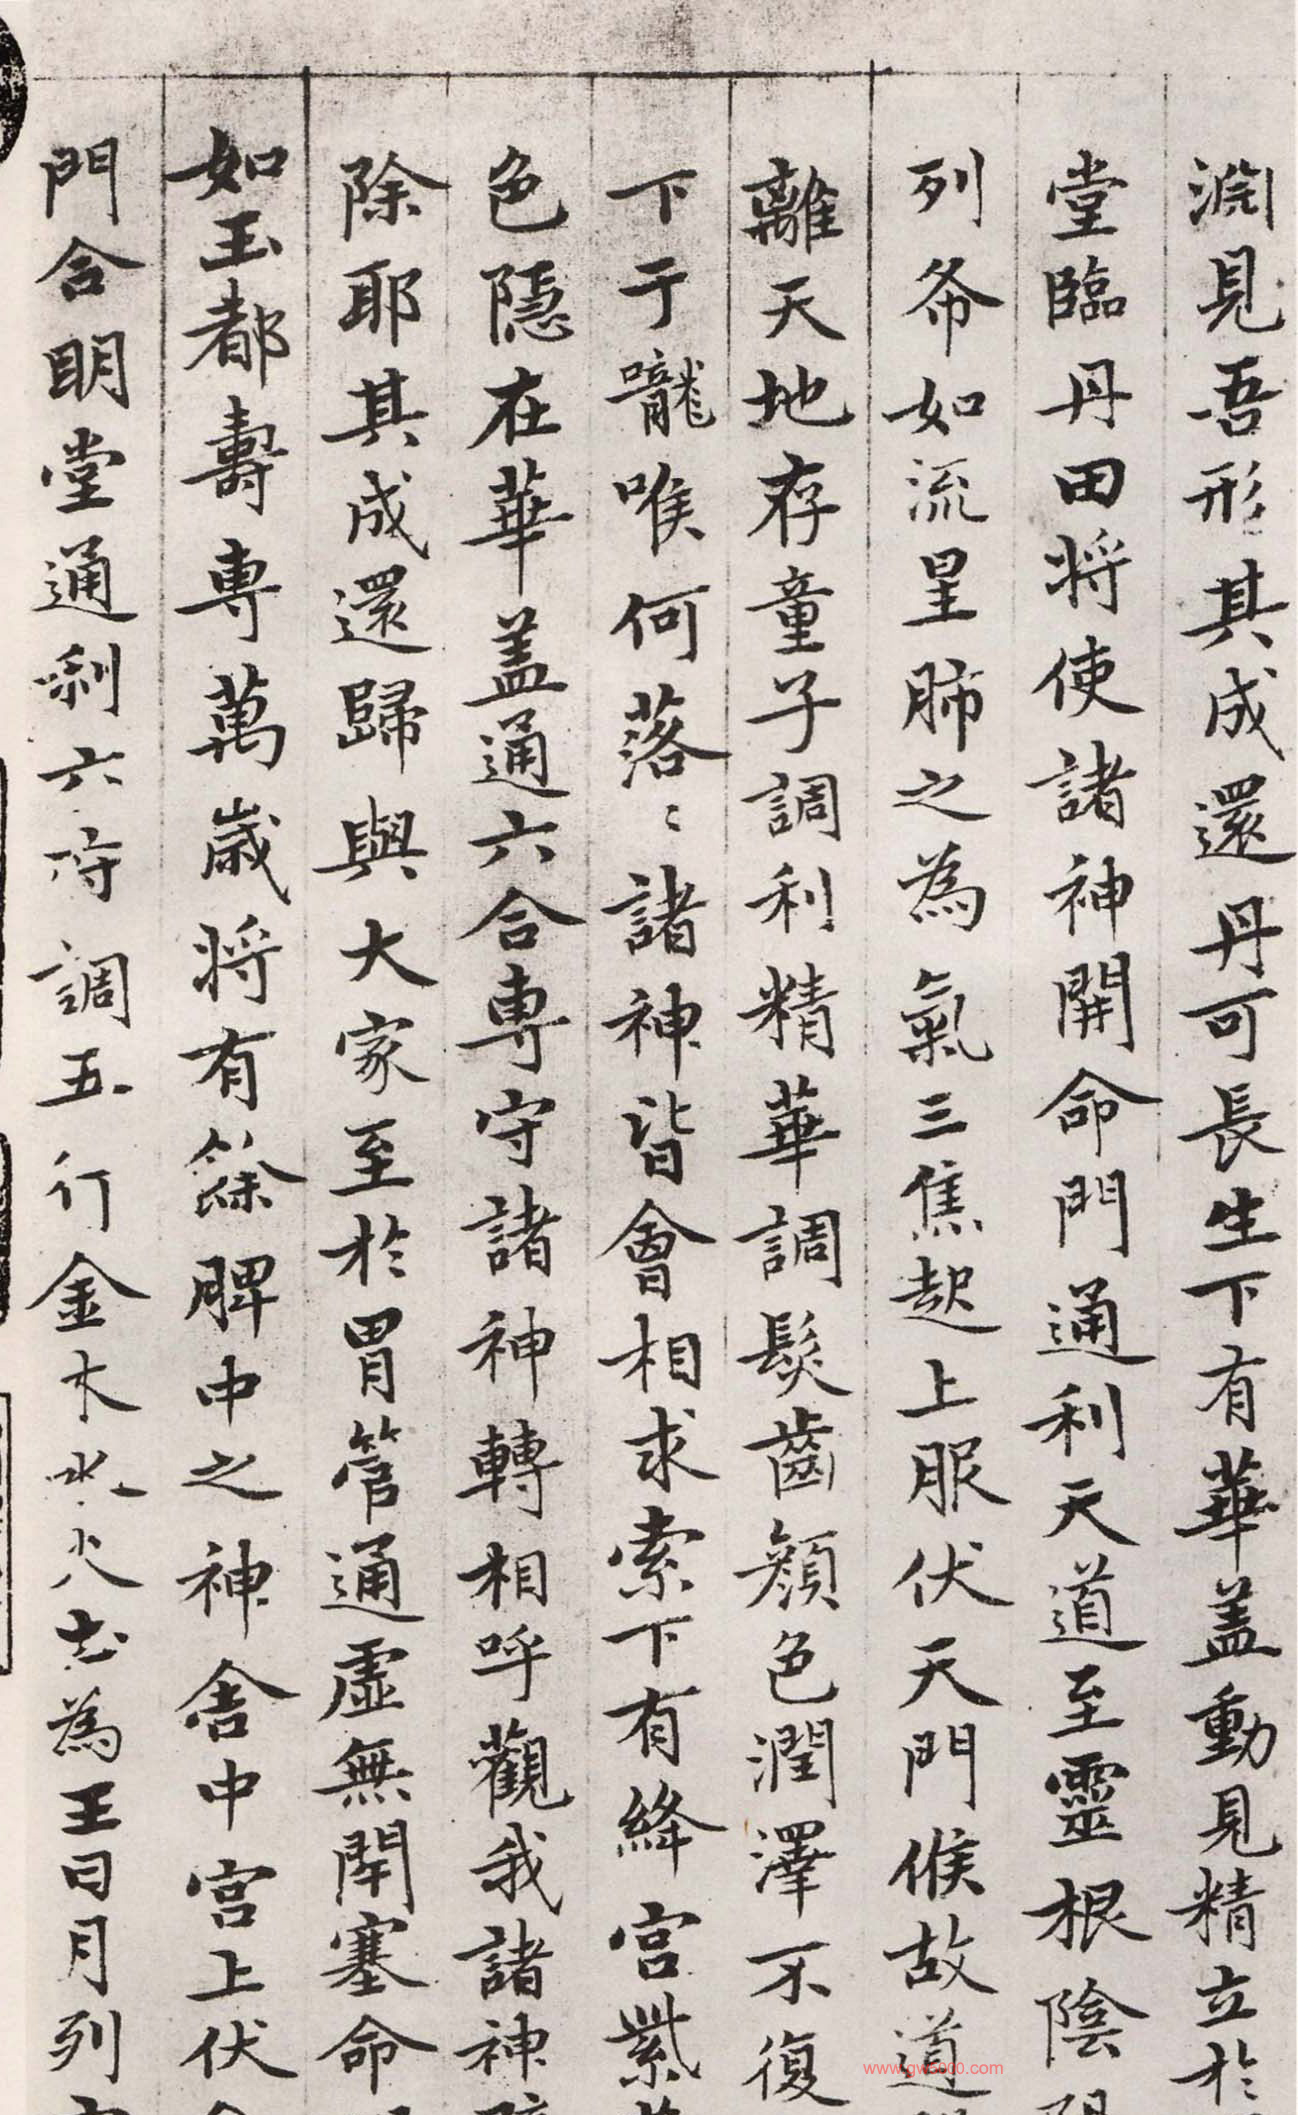 淵見吾形其成還丹可長生下有華盖動見精立於
堂臨丹田將使諸神開命門通利天道至靈根陰
列希如流星肺之為氣三焦起上服伏天門候故道
離天地存童子調利精華調髮齒顏色潤澤不復
下于嚨喉何落〻諸神皆會相求索下有絳宮紫
色隱在華盖通六合專守諸神轉相呼觀我諸神
除耶其成還歸與大家至於胃管通虛無閉塞命
如玉都壽專萬歲將有餘脾中之神舍中宮上伏
門合明堂通利六府調五行金木水火土為王日月列
www.gwc000.com